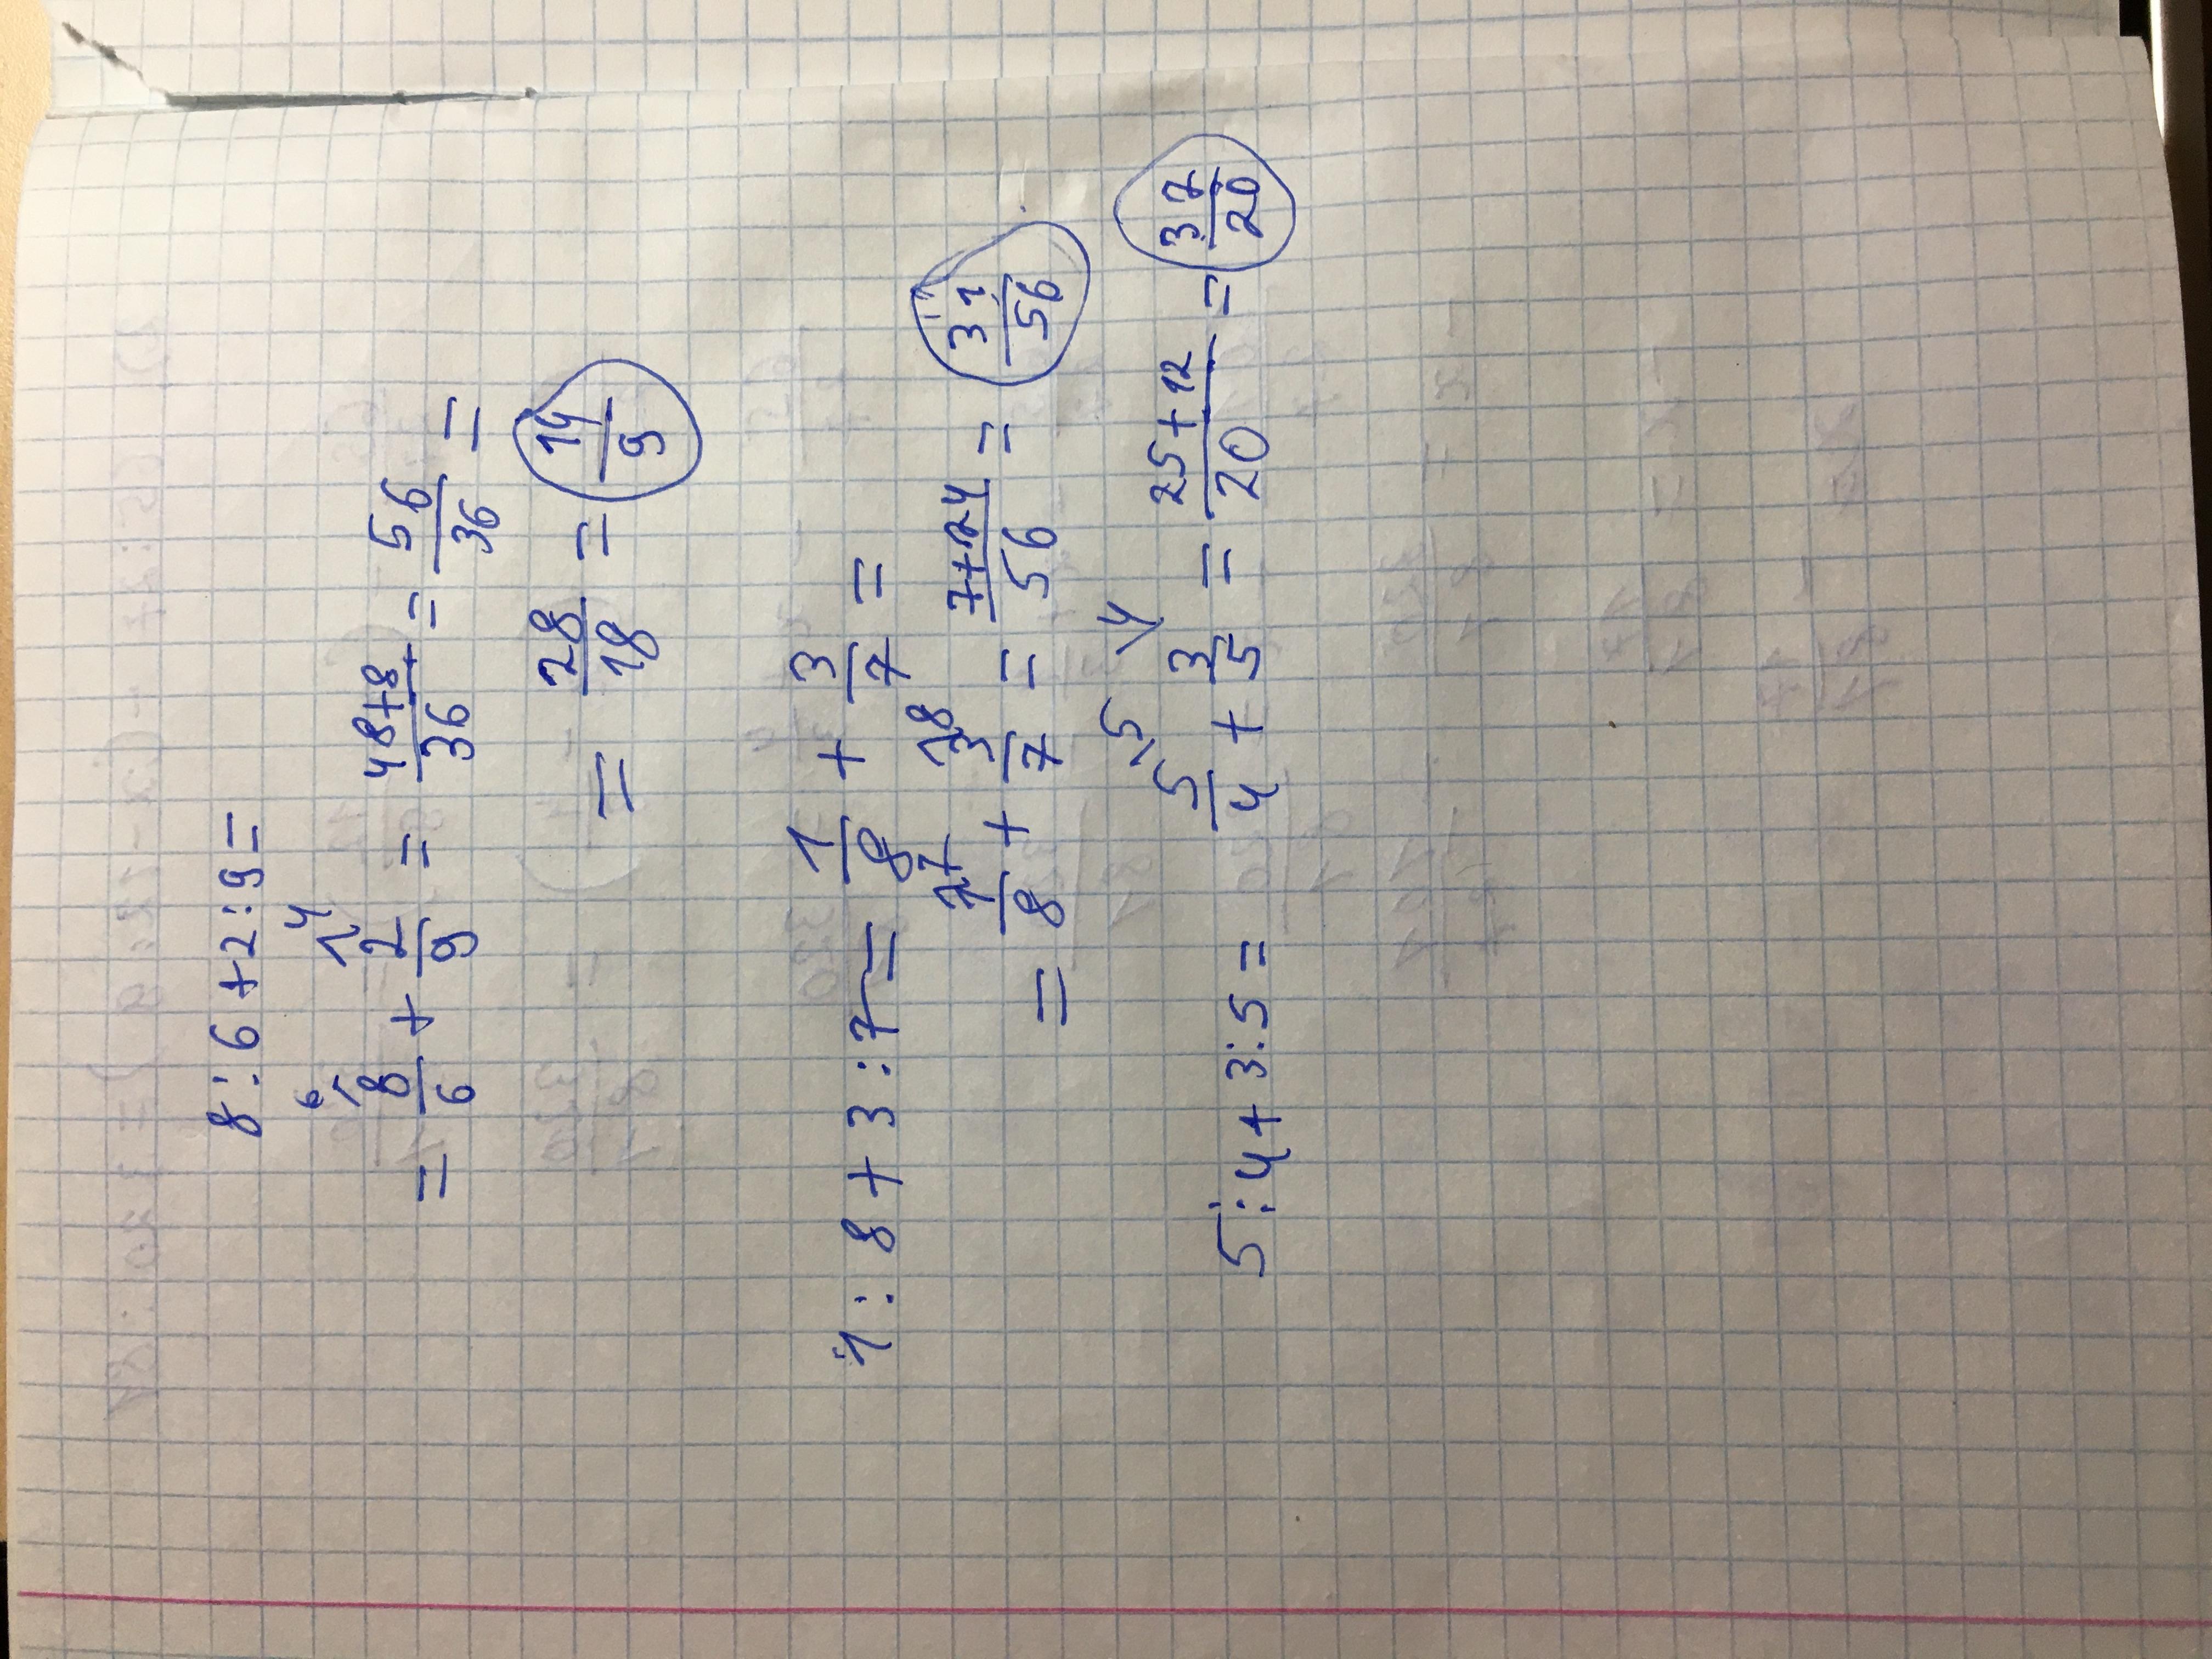 8 : 6 + 2 : 9 =
= 8/6 + 2/9 = 48+8/36 = 56/36 =
= 28/18 = 14/9
1 : 8 + 3 : 7 = 1/8 + 3/7 =
= 1/8 + 3/7 = 7+24/56 = 31/56
5 : 4 + 3 : 5 = 5/4 + 3/5 = 25+12/20 = 37/20